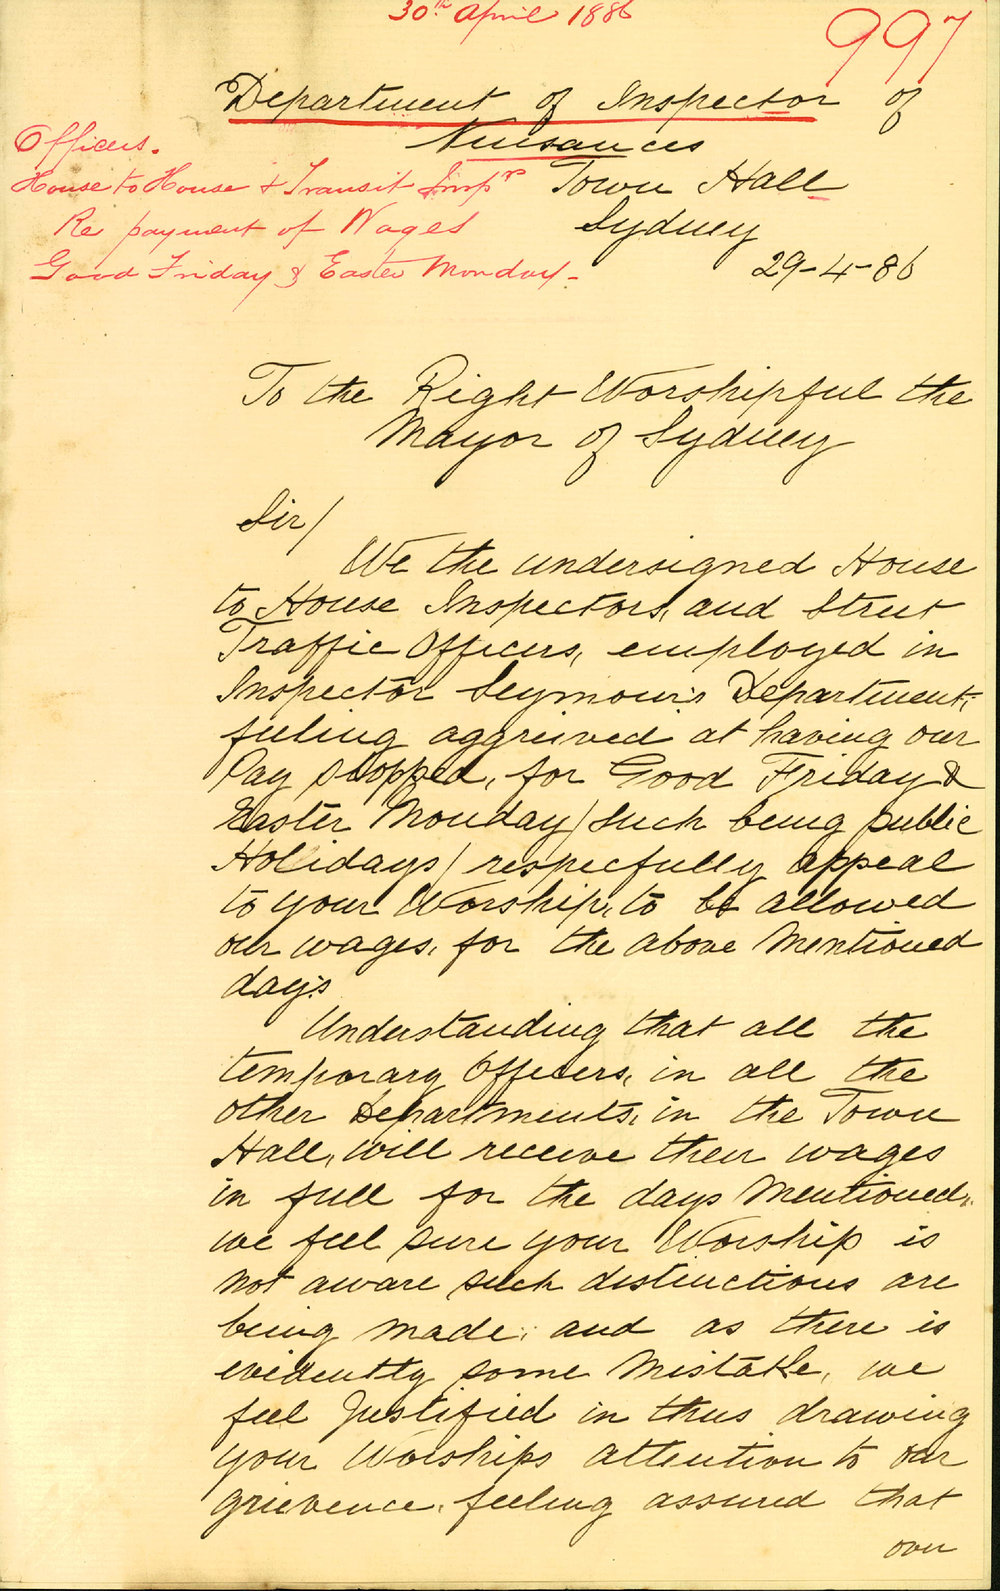 30th April 1886
997
Department of Inspector of
Nuisances
Town Hall
Sydney
29-4-86
Officers.
House to House & Transit Insprs
Re payment of Wages
Good Friday & Easter Monday-
To the Right Worshipful the
Mayor of Sydney
Sir/
We the undersigned House
to House Inspectors, and Street
Traffic Officers, employed in
Inspector Seymour's Department,
feeling aggreived at having our
Pay stopped, for Good Friday &
Easter Monday/ Such being public
Holidays/ respectfully appeal
to your Worship, to be allowed
our wages, for the above Mentioned
day's
Understanding that all the
temporary Officers, in all the
other Departments, in the Town
Hall, will receive their wages
in full for the days Mentioned,
we feel sure your Worship is
not aware such distinctions are
being made, and as there is
evidently some Mistake, we
feel Justified in thus drawing
your Worships attention to our
grievence, feeling assured that
over